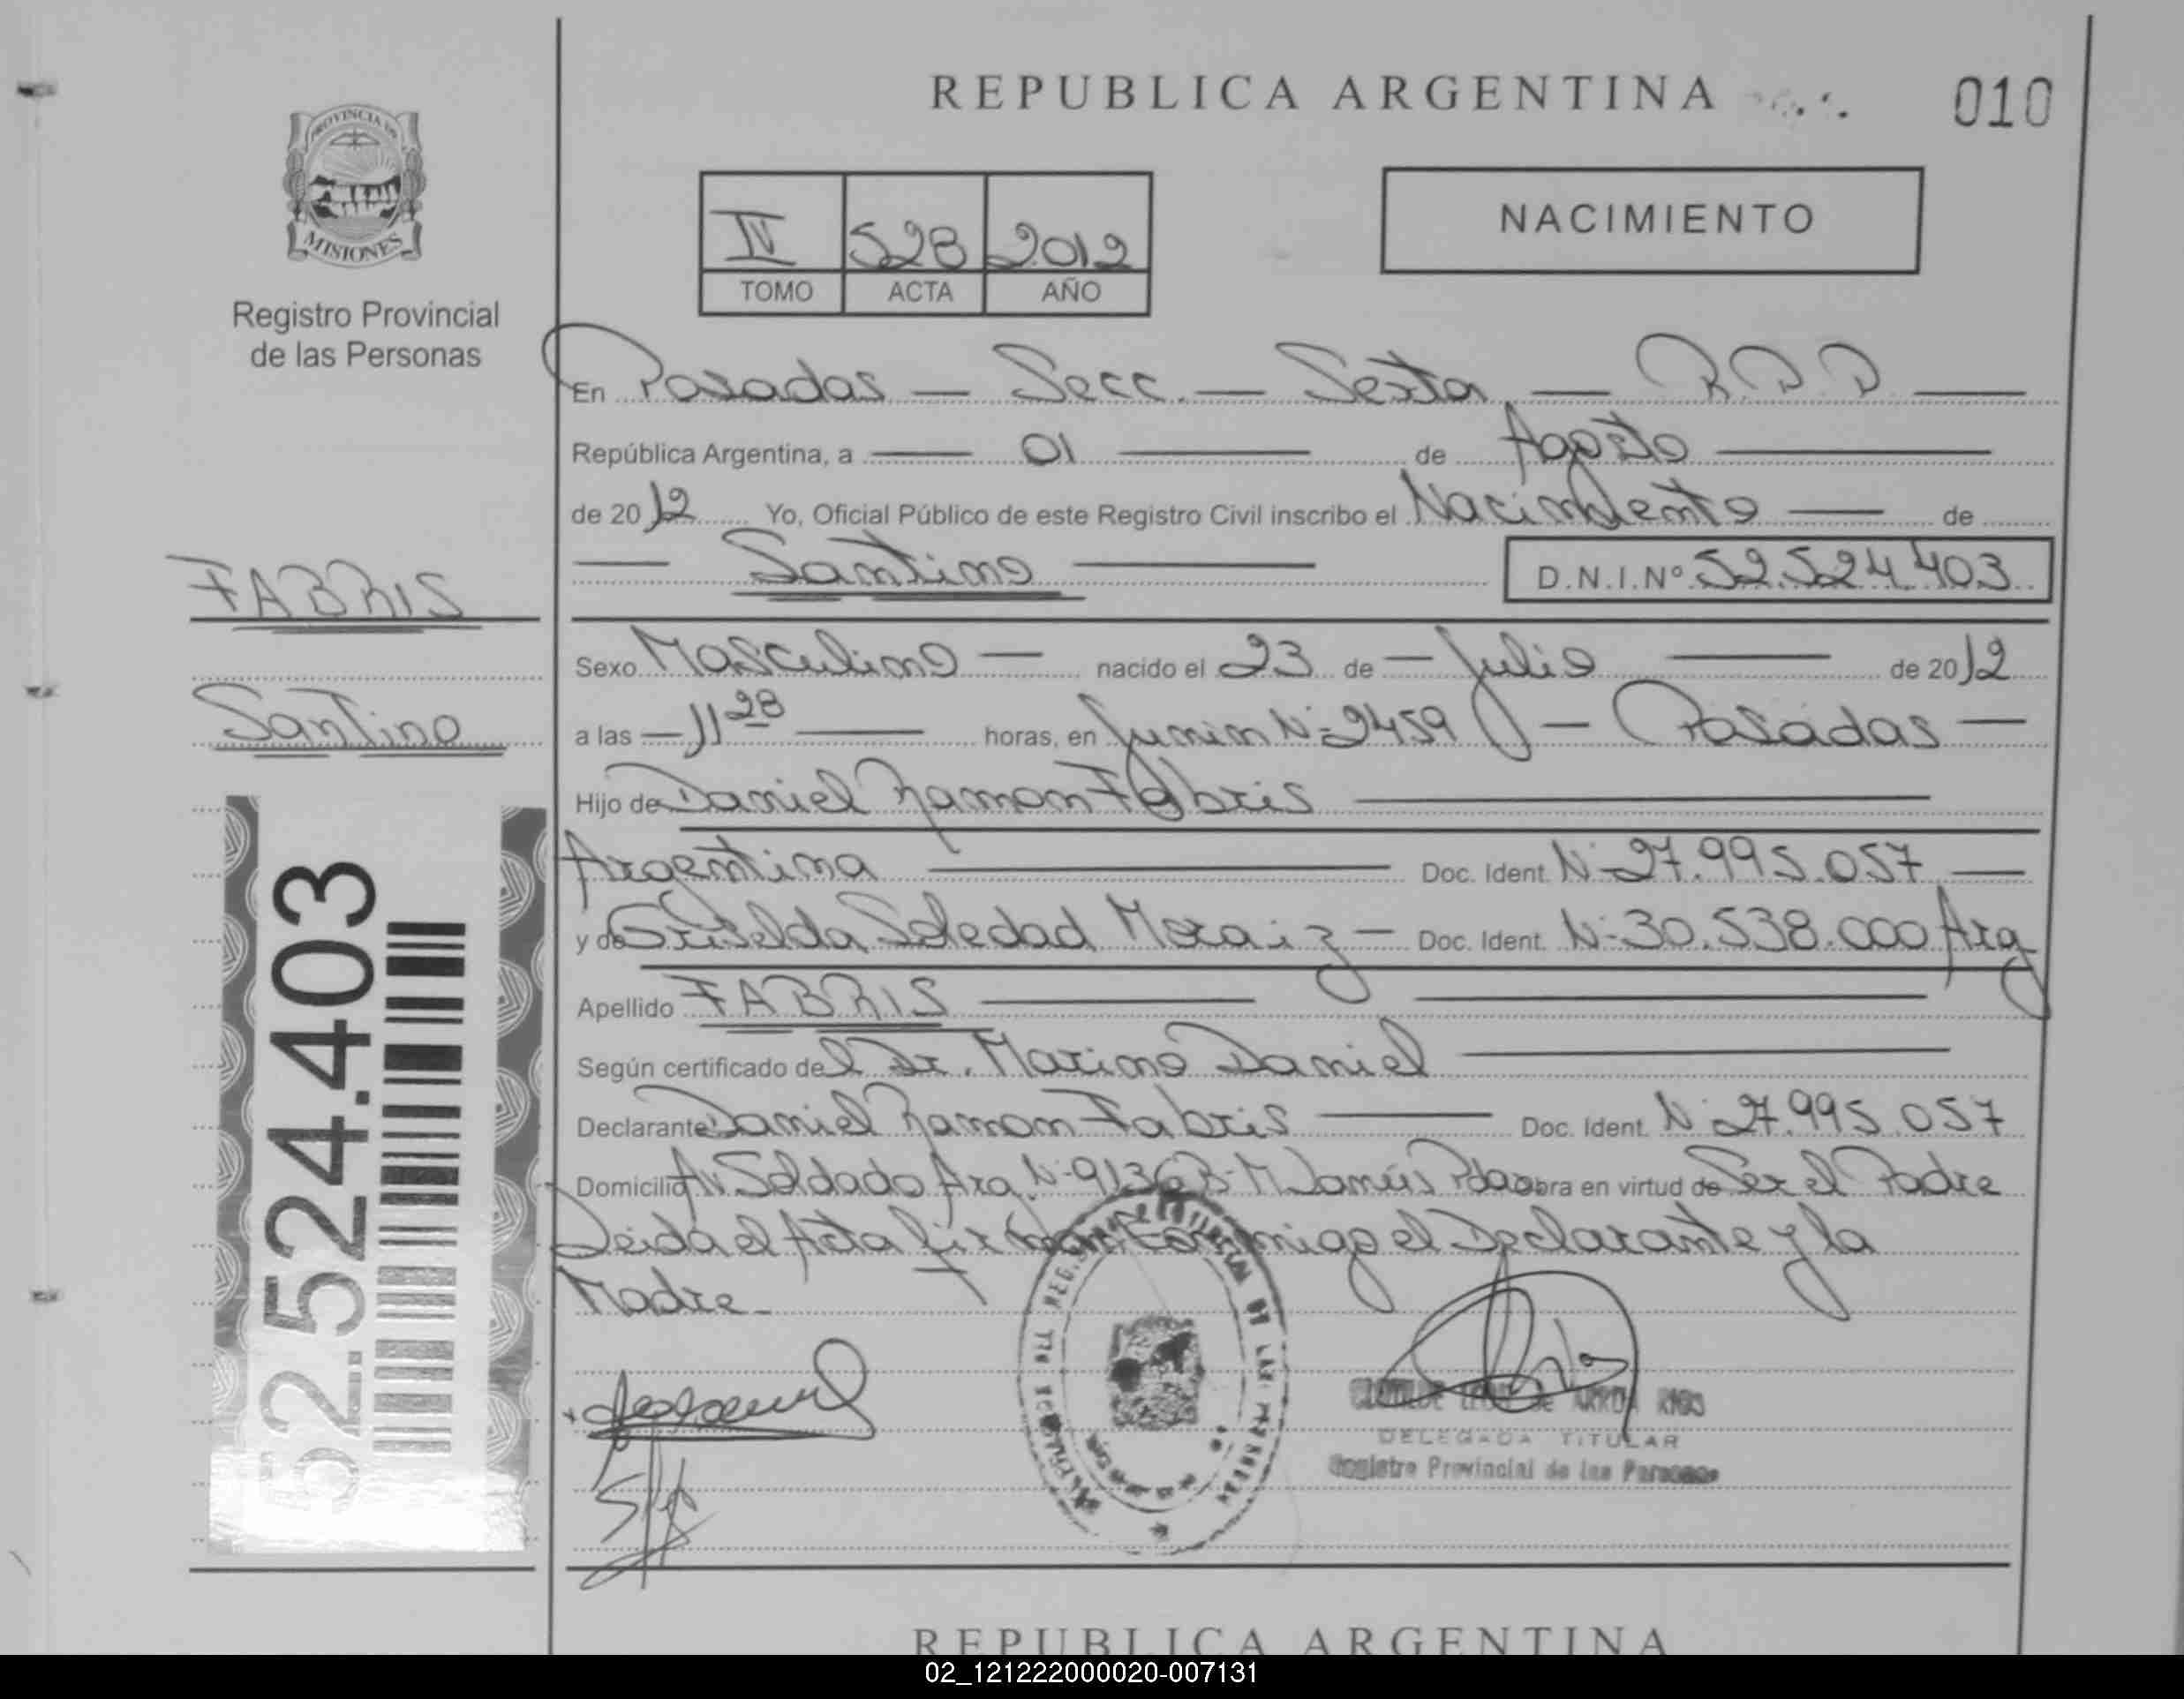 REPUBLICA ARGENTINA
010
PROVINCIA DE
MISIONES
Registro Provincial
de las Personas
IV 528 2012
TOMO ACTA AÑO
NACIMIENTO
En Posadas — Secc. — Sexta — R.P.P —
República Argentina, a — 01 — de Agosto —
de 2012 Yo, Oficial Público de este Registro Civil inscribo el Nacimiento — de
— Santino — D.N.I.Nº 52.524.403
FABRIS
Santino
Sexo Masculino — nacido el 23 de — Julio — de 2012
a las — 11 28 — horas, en Junin Nº 2459 — Posadas —
Hijo de Daniel Ramon Fabris —
Argentina — Doc. Ident. Nº 27.995.057 —
y de Griselda Soledad Moraiz — Doc. Ident. Nº 30.538.000 Arg
Apellido FABRIS —
Según certificado del Dr. Marino Daniel —
Declarante Daniel Ramon Fabris — Doc. Ident. Nº 27.995.057
Domicilio Av. Soldado Arg. Nº 9136 Bº M Lanús Pdas obra en virtud de Ser el Padre
Leida el Acta firman conmigo el Declarante y la
Madre-
52.524.403
DELEGADA TITULAR
Registro Provincial de las Personas
REPUBLICA ARGENTINA
02_121222000020-007131